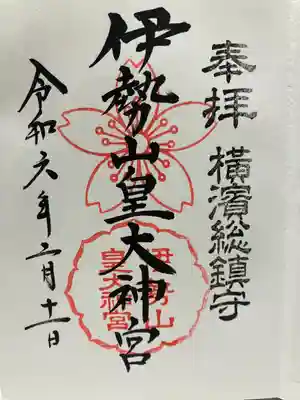 奉拝 横濱総鎮守
伊勢山皇大神宮
伊勢山
皇大神宮
令和六年二月十一日